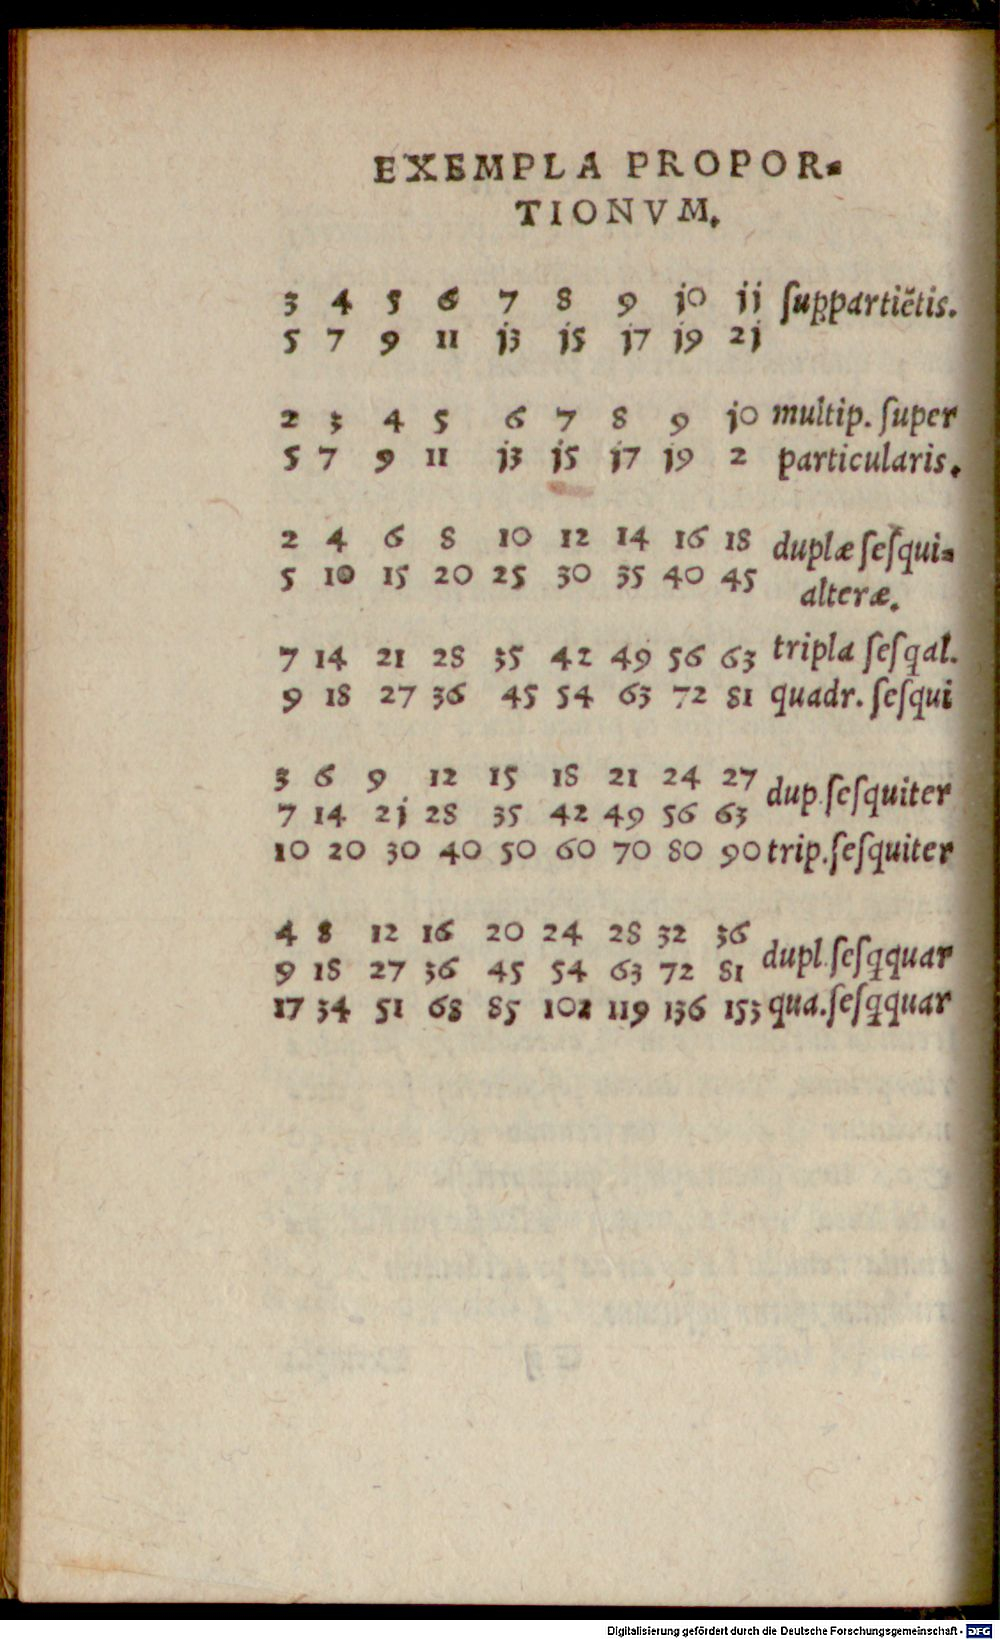 EXEMPLA PROPOR-
TIONVM.
3 4 5 6 7 8 9 j0 jj ſuꝑpartiētis.
5 7 9 11 j3 j5 j7 j9 2j
2 3 4 5 6 7 8 9 j0 multip. ſuper
5 7 9 11 j3 j5 j7 j9 2 particularis.
2 4 6 8 10 12 14 16 18 duplæ ſeſqui-
5 10 15 20 25 30 35 40 45 alteræ.
7 14 21 28 35 42 49 56 63 tripla ſeſꝗal.
9 18 27 36 45 54 63 72 81 quadr. ſeſqui
3 6 9 12 15 18 21 24 27 dup. ſeſquiter
7 14 2j 28 35 42 49 56 63
10 20 30 40 50 60 70 80 90 trip. ſeſquiter
4 8 12 16 20 24 28 32 36 dupl. ſeſꝗquar
9 18 27 36 45 54 63 72 81
17 34 51 68 85 102 119 136 153 qua. ſeſꝗquar
Digitalisierung gefördert durch die Deutsche Forschungsgemeinschaft - DFG